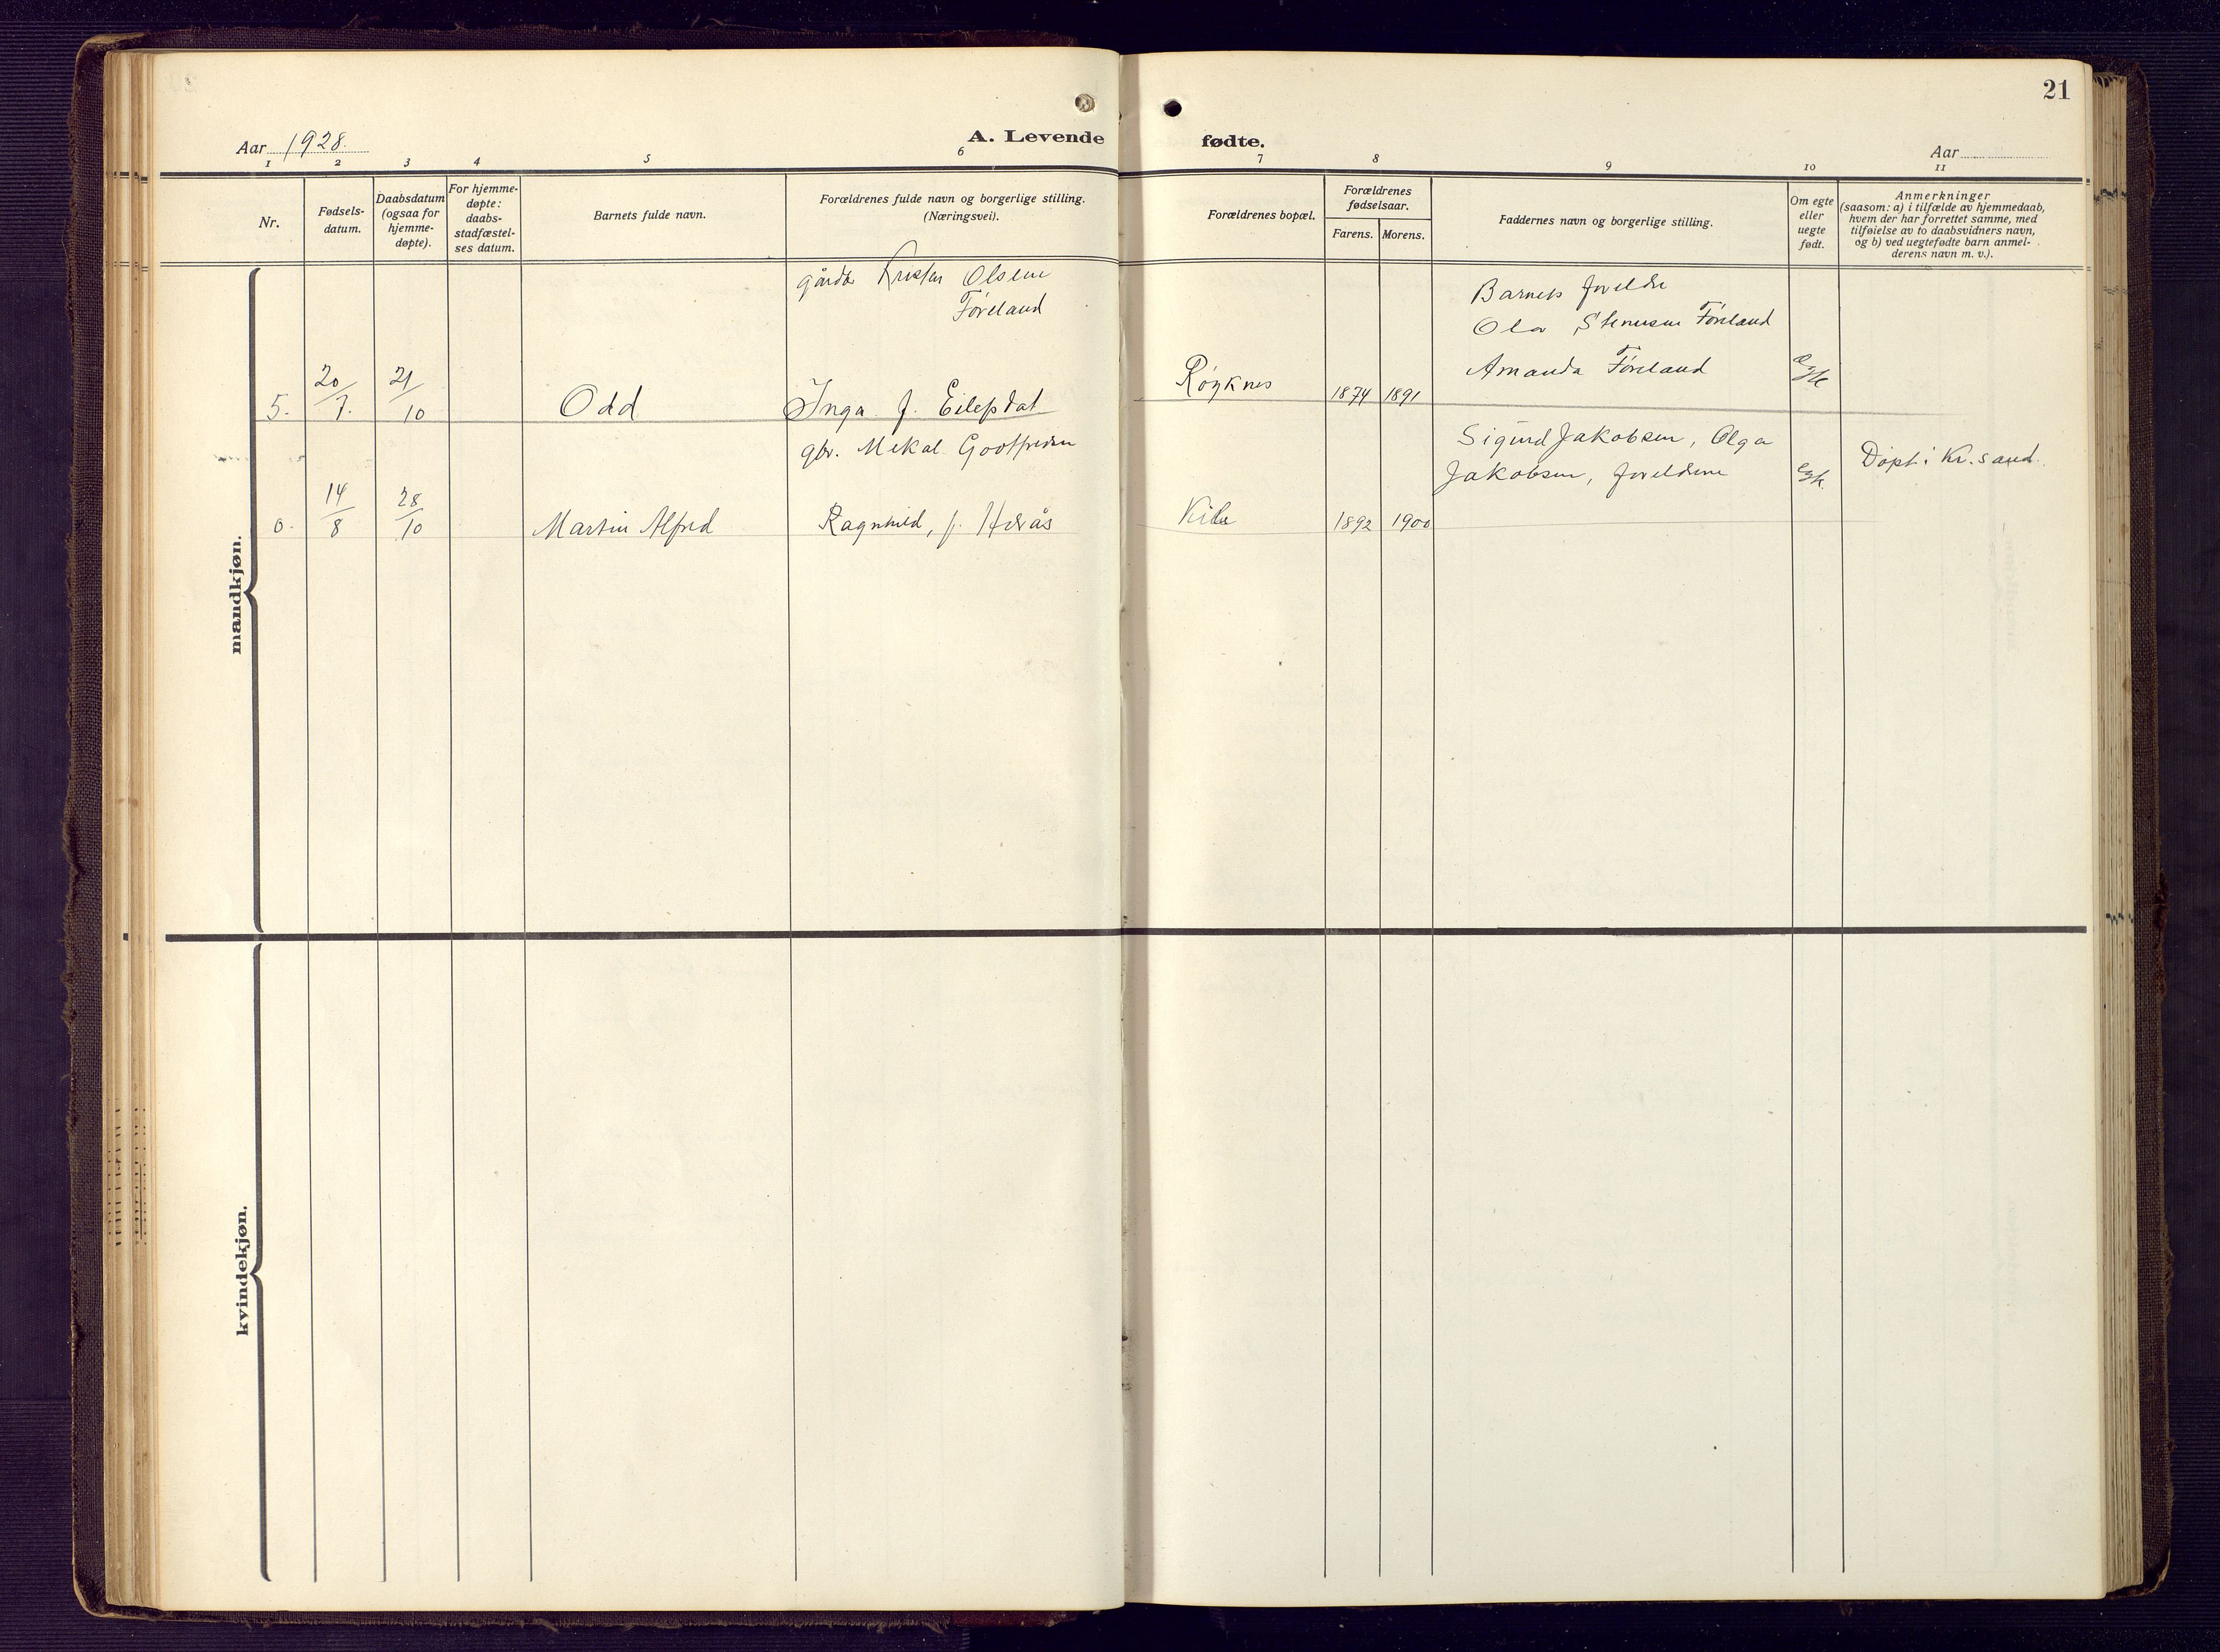 21
Aar 1928.
A. Levende fødte.
Aar
1 2 3 4 5 6 7 8 9 10 11
Nr.
Fødsels-
datum.
Daabsdatum
(ogsaa for
hjemme-
døpte).
For hjemme-
døpte:
daabs-
stadfæstel-
ses datum.
Barnets fulde navn.
Forældrenes fulde navn og borgerlige stilling.
(Næringsvei).
Forældrenes bopæl.
Forældrenes
fødselsaar.
Farens. Morens.
Faddernes navn og borgerlige stilling.
Om egte
eller
uegte
født.
Anmerkninger
(saasom: a) i tilfælde av hjemmedaab,
hvem der har forrettet samme, med
tilføielse av to daabsvidners navn,
og b) ved uegtefødte barn anmel-
derens navn m. v.).
mandkjøn.
5.
20/7.
21/10
Odd
gårdbr Kristen Olsen
Føreland
Inga f. Eilefsdal
Røyknes
1874 1891
Barnets foreldre
Olav Stenusen Føreland
Amanda Føreland
egte
14/8
28/10
Martin Alfred
gbr. Mekal Gootfredsen
Ragnhild, f.
Kile
1892 1900
Sigurd Jakobsen, Olga
Jakobsen, foreldrene
egte
Døpt i Kr.sand.
kvindekjøn.